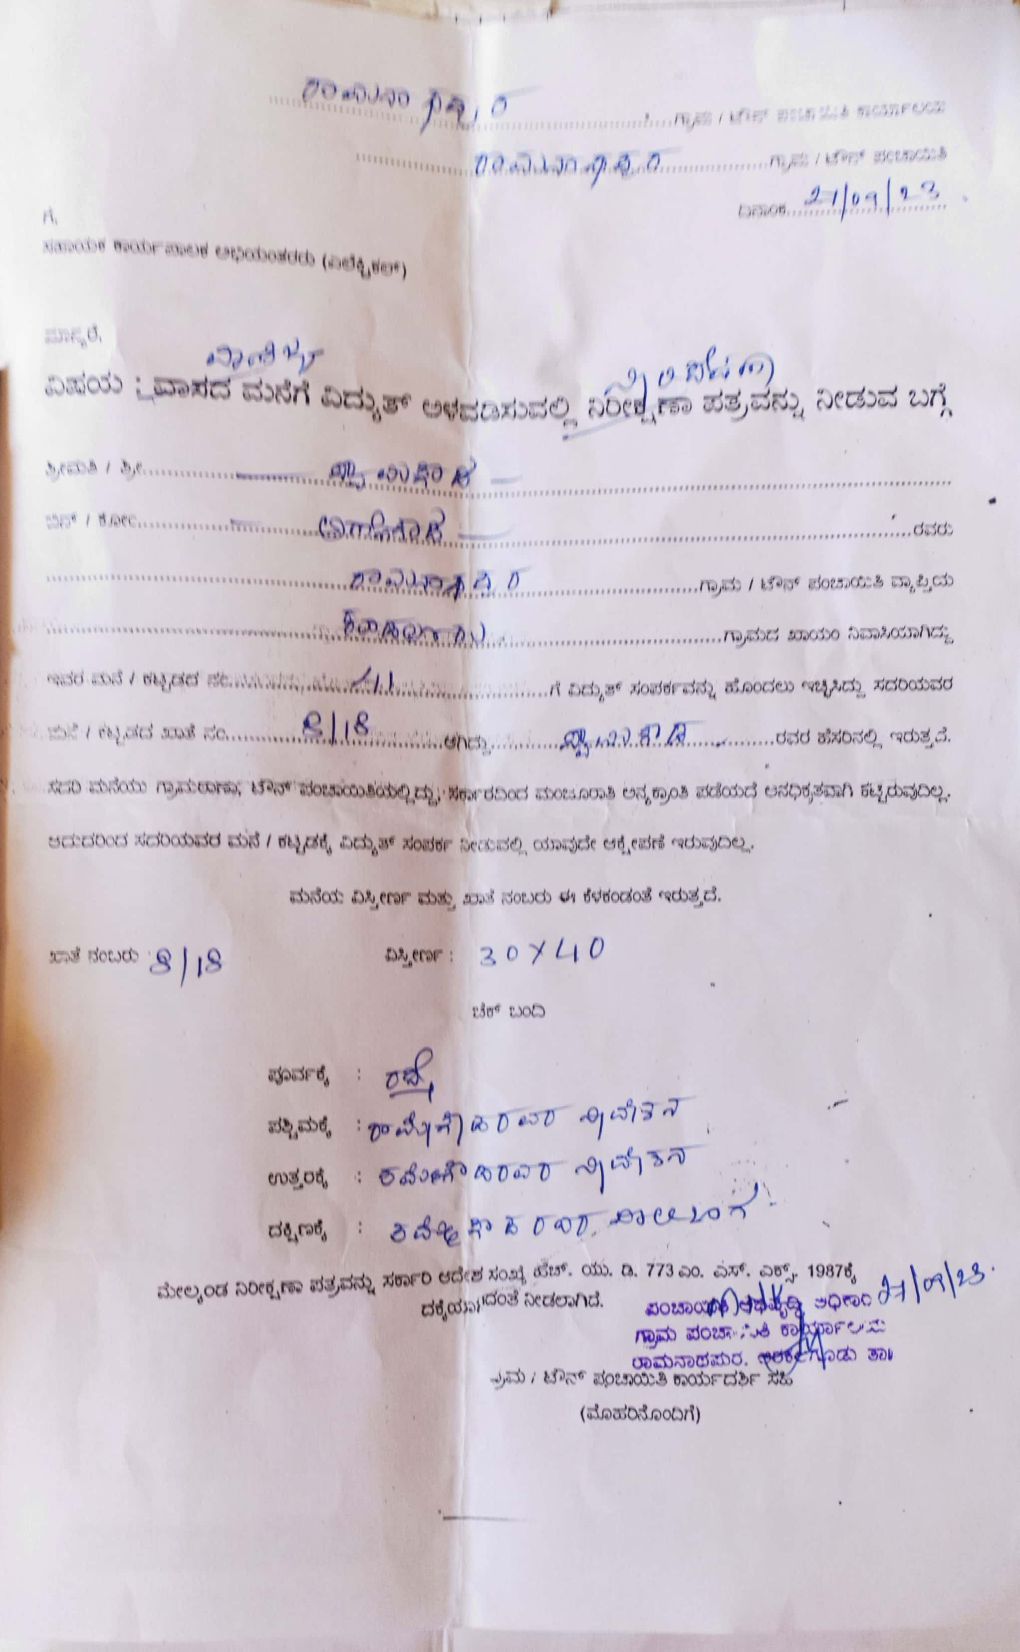 ರಾಮನಾಥಪುರ ಗ್ರಾಮ / ಟೌನ್ ಪಂಚಾಯಿತಿ ಕಾರ್ಯಾಲಯ
ರಾಮನಾಥಪುರ ಗ್ರಾಮ / ಟೌನ್ ಪಂಚಾಯಿತಿ
ದಿನಾಂಕ 27/09/23
ಗೆ,
ಸಹಾಯಕ ಕಾರ್ಯಪಾಲಕ ಅಭಿಯಂತರರು (ಎಲೆಕ್ಟ್ರಿಕಲ್)
ಮಾನ್ಯರೆ,
ವಾಣಿಜ್ಯ
ವಿಷಯ : ವಾಸದ ಮನೆಗೆ ವಿದ್ಯುತ್ ಅಳವಡಿಸುವಲ್ಲಿ ನಿರೀಕ್ಷಣಾ ಪತ್ರವನ್ನು ನೀಡುವ ಬಗ್ಗೆ
ಶ್ರೀಮತಿ / ಶ್ರೀ
ಬಿನ್ / ಕೋಂ ರವರು
ರಾಮನಾಥಪುರ ಗ್ರಾಮ / ಟೌನ್ ಪಂಚಾಯಿತಿ ವ್ಯಾಪ್ತಿಯ
ಗ್ರಾಮದ ಖಾಯಂ ನಿವಾಸಿಯಾಗಿದ್ದು
ಇವರ ಮನೆ / ಕಟ್ಟಡದ ನಂ ಗೆ ವಿದ್ಯುತ್ ಸಂಪರ್ಕವನ್ನು ಹೊಂದಲು ಇಚ್ಛಿಸಿದ್ದು ಸದರಿಯವರ
ಮನೆ / ಕಟ್ಟಡದ ಖಾತೆ ನಂ 8/18 ಆಗಿದ್ದು ರವರ ಹೆಸರಿನಲ್ಲಿ ಇರುತ್ತದೆ.
ಸದರಿ ಮನೆಯು ಗ್ರಾಮಠಾಣಾ, ಟೌನ್ ಪಂಚಾಯಿತಿಯಲ್ಲಿದ್ದು, ಸರ್ಕಾರದಿಂದ ಮಂಜೂರಾತಿ ಅನ್ಯಕ್ರಾಂತಿ ಪಡೆಯದೆ ಅನಧಿಕೃತವಾಗಿ ಕಟ್ಟಿರುವುದಿಲ್ಲ.
ಆದುದರಿಂದ ಸದರಿಯವರ ಮನೆ / ಕಟ್ಟಡಕ್ಕೆ ವಿದ್ಯುತ್ ಸಂಪರ್ಕ ನೀಡುವಲ್ಲಿ ಯಾವುದೇ ಆಕ್ಷೇಪಣೆ ಇರುವುದಿಲ್ಲ.
ಮನೆಯ ವಿಸ್ತೀರ್ಣ ಮತ್ತು ಖಾತೆ ನಂಬರು ಈ ಕೆಳಕಂಡಂತೆ ಇರುತ್ತದೆ.
ಖಾತೆ ನಂಬರು 8/18 ವಿಸ್ತೀರ್ಣ : 30 X 40
ಚೆಕ್ ಬಂದಿ
ಪೂರ್ವಕ್ಕೆ : ರಸ್ತೆ
ಪಶ್ಚಿಮಕ್ಕೆ : ರವರ ನಿವೇಶನ
ಉತ್ತರಕ್ಕೆ : ರವರ ನಿವೇಶನ
ದಕ್ಷಿಣಕ್ಕೆ :
ಮೇಲ್ಕಂಡ ನಿರೀಕ್ಷಣಾ ಪತ್ರವನ್ನು ಸರ್ಕಾರಿ ಆದೇಶ ಸಂಖ್ಯೆ ಹೆಚ್. ಯು. ಡಿ. 773 ಎಂ. ಎಸ್. ಎಕ್ಸ್. 1987ಕ್ಕೆ
ನೀಡಲಾಗಿದೆ.
27/09/23
ಪಂಚಾಯಿತಿ ಅಭಿವೃದ್ಧಿ ಅಧಿಕಾರಿ
ಗ್ರಾಮ ಪಂಚಾಯಿತಿ ಕಾರ್ಯಾಲಯ
ರಾಮನಾಥಪುರ, ಅರಕಲಗೂಡು ತಾ||
ಗ್ರಾಮ / ಟೌನ್ ಪಂಚಾಯಿತಿ ಕಾರ್ಯದರ್ಶಿ ಸಹಿ
(ಮೊಹರಿನೊಂದಿಗೆ)